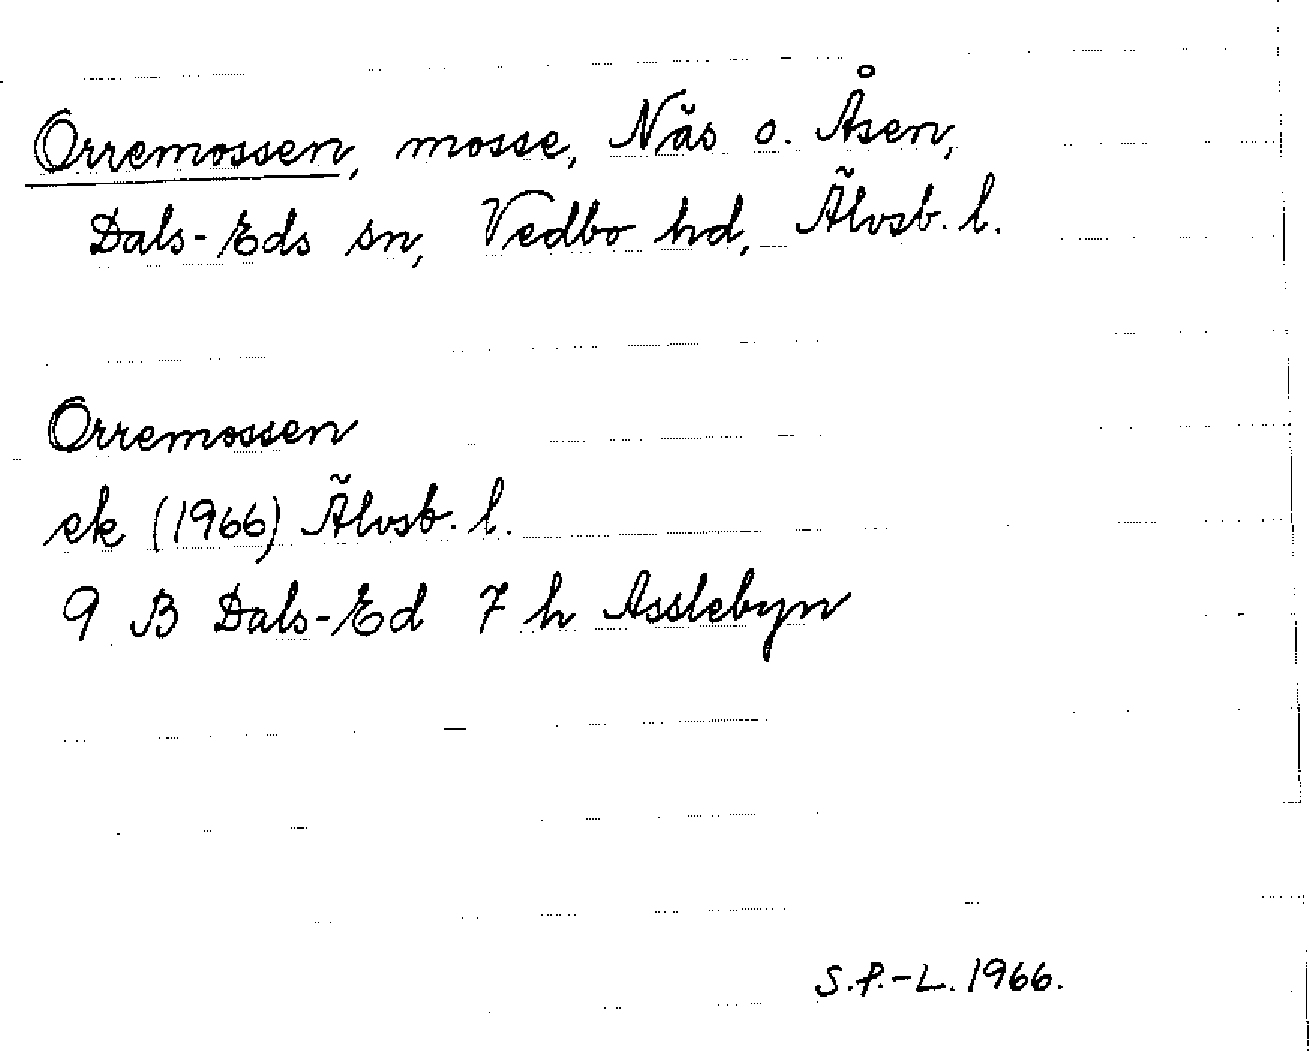 Orremossen, mosse, Näs o. Åsen,
Dals-Eds sn, Vedbo hd, Älvsb. l.
Orremossen
ek (1966) Älvsb. l.
9 B Dals-Ed 7 h Asslebyn
S.P.-L. 1966.